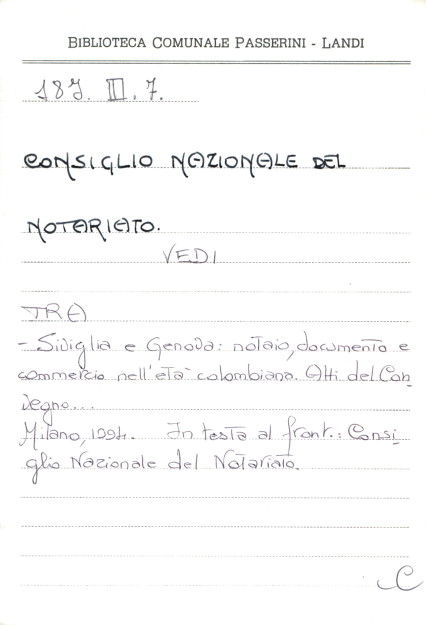 BIBLIOTECA COMUNALE PASSERINI - LANDI
187. III. 7.
CONSIGLIO NAZIONALE DEL
NOTARIATO.
VEDI
TRA
- Siviglia e Genova: notaio, documento e
commercio nell'età colombiana. Atti del Con
vegno...
Milano, 1994. In testa al front.: Consi
glio Nazionale del Notariato.
C